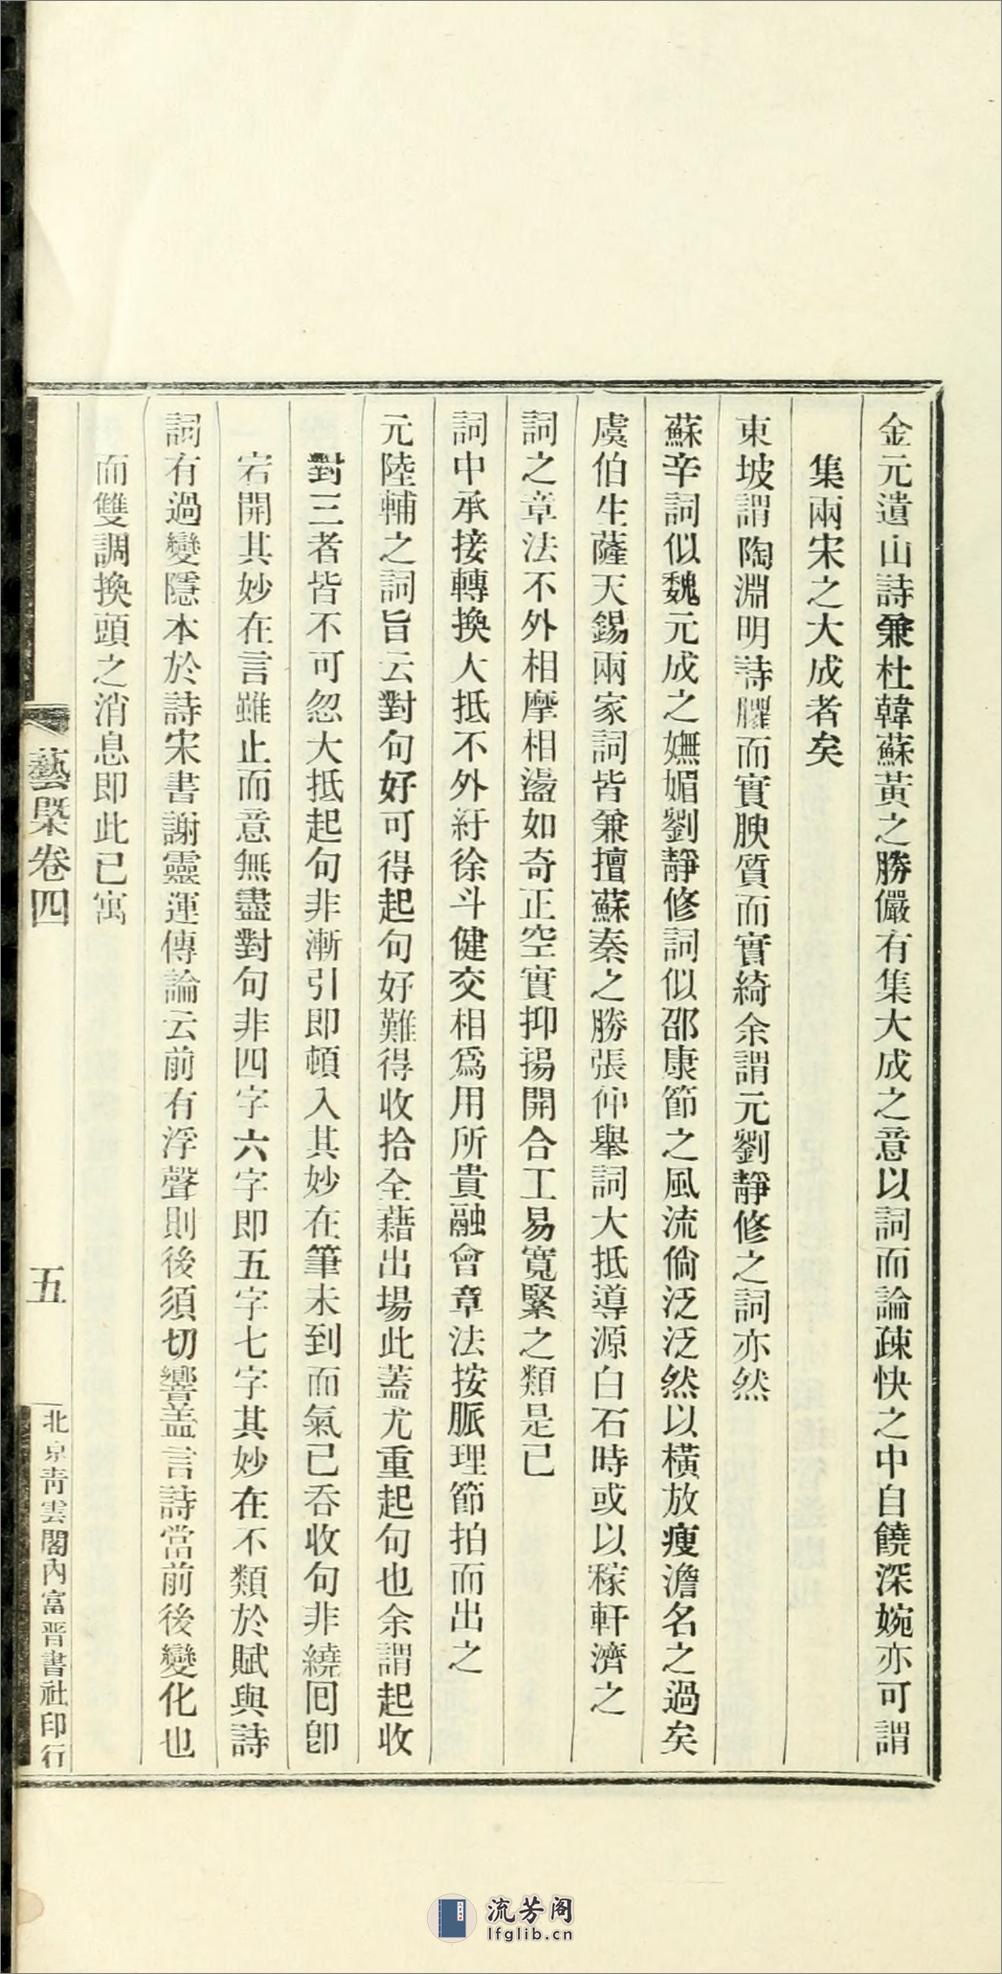 金元遺山詩兼杜韓蘇黃之勝儼有集大成之意以詞而論疎快之中自饒深婉亦可謂
集兩宋之大成者矣
東坡謂陶淵明詩臞而實腴質而實綺余謂元劉靜修之詞亦然
蘇辛詞似魏元成之嫵媚劉靜修詞似邵康節之風流倘泛泛然以橫放瘦澹名之過矣
虞伯生薩天錫兩家詞皆兼擅蘇秦之勝張仲舉詞大抵導源白石時或以稼軒濟之
詞之章法不外相摩相盪如奇正空實抑揚開合工易寬緊之類是已
詞中承接轉換大抵不外紆徐斗健交相爲用所貴融會章法按脈理節拍而出之
元陸輔之詞旨云對句好可得起句好難得收拾全藉出場此蓋尤重起句也余謂起收
對三者皆不可忽大抵起句非漸引即頓入其妙在筆未到而氣已吞收句非繞回卽
宕開其妙在言雖止而意無盡對句非四字六字即五字七字其妙在不類於賦與詩
詞有過變隱本於詩宋書謝靈運傳論云前有浮聲則後須切響蓋言詩當前後變化也
而雙調換頭之消息即此已寓
藝槩卷四
五
北京青雲閣內富晋書社印行
流芳阁
lfglib.cn